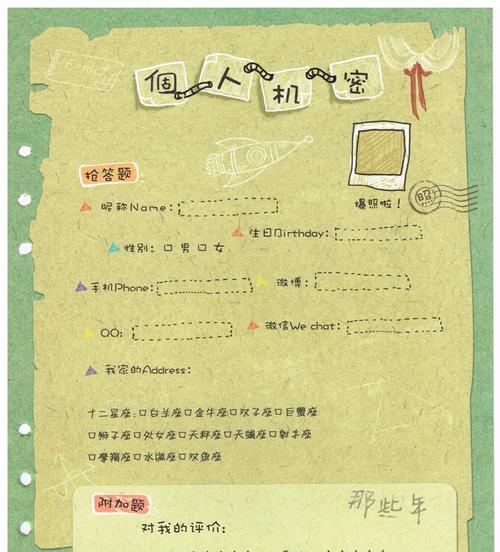 個人机密
抢答题
昵称Name:
爆照啦!
照
生日Birthday:
性别: 口 男 口 女
手机Phone:
微博:
QQ:
微信We chat:
我家的Address:
十二星座:口白羊座口金牛座口双子座口巨蟹座
口狮子座口处女座口天秤座口天蝎座口射手座
口摩羯座口水瓶座口双鱼座
附加题
那些年
对我的评价: